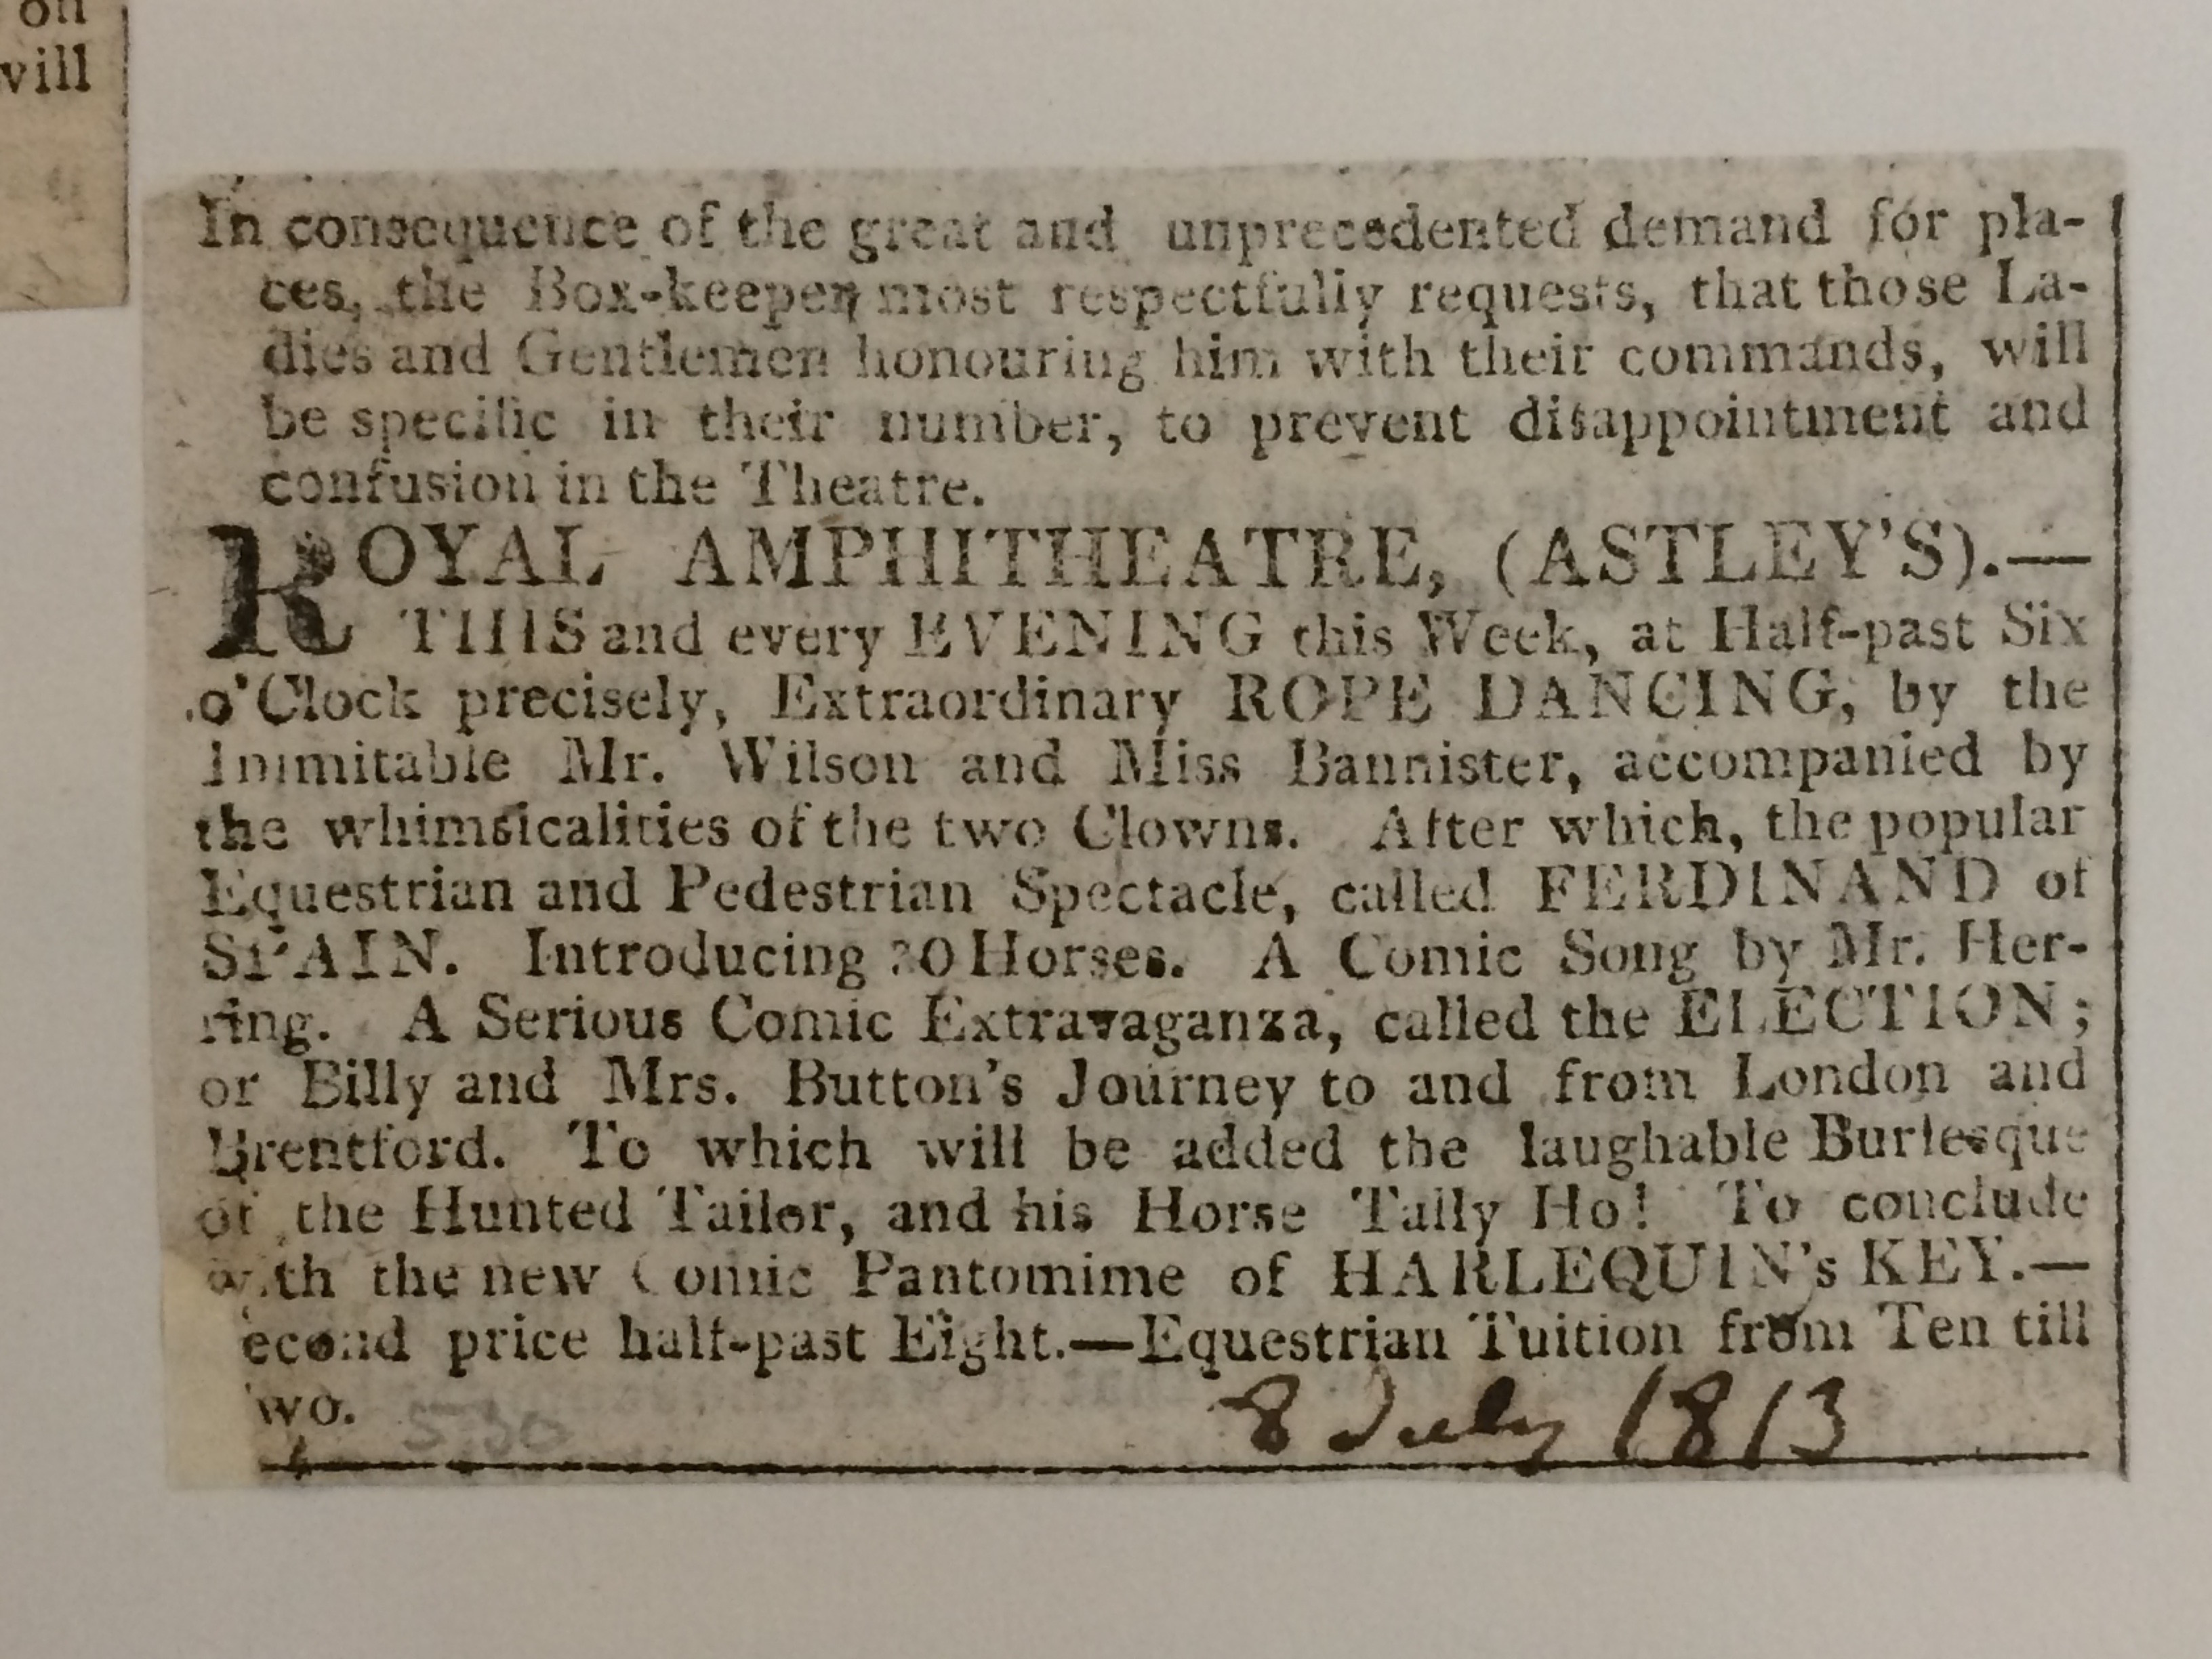 on
will
In consequence of the great and unprecedented demand for pla-
ces, the Box-keeper most respectfully requests, that those La-
dies and Gentlemen honouring him with their commands, will
be specific in their number, to prevent disappointment and
confusion in the Theatre.
ROYAL AMPHITHEATRE, (ASTLEY'S).—
THIS and every EVENING this Week, at Half-past Six
o'Clock precisely, Extraordinary ROPE DANCING, by the
Inimitable Mr. Wilson and Miss Bannister, accompanied by
the whimsicalities of the two Clowns. After which, the popular
Equestrian and Pedestrian Spectacle, called FERDINAND of
SPAIN. Introducing Horses. A Comic Song by Mr. Her-
ring. A Serious Comic Extravaganza, called the ELECTION;
or Billy and Mrs. Button's Journey to and from London and
Brentford. To which will be added the laughable Burlesque
of the Hunted Tailor, and his Horse Tally Ho! To conclude
with the new Comic Pantomime of HARLEQUIN's KEY.—
econd price half-past Eight.—Equestrian Tuition from Ten till
wo. 530
8 July 1813